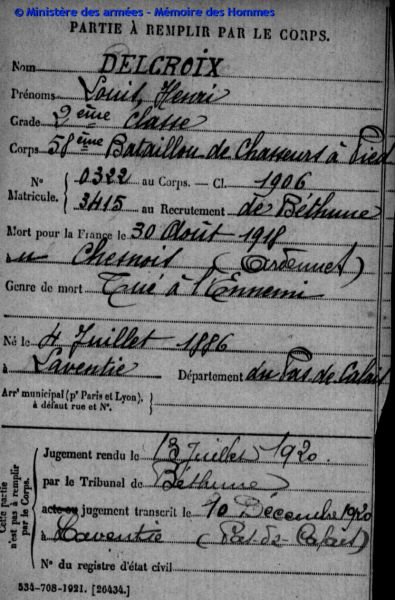 © Ministère des armées - Mémoire des Hommes
PARTIE À REMPLIR PAR LE CORPS.
Nom DELCROIX
Prénoms Louis, Henri
Grade 2ème classe
Corps 58ème Bataillon de Chasseurs à Pied
N° 0322 au Corps. — Cl. 1906
Matricule. 3415 au Recrutement de Béthune
Mort pour la France le 30 Août 1918
au Chesnois (Ardennes)
Genre de mort Tué à l'Ennemi
Né le 4 Juillet 1886
à Laventie Département du Pas de Calais
Arrt municipal (pr Paris et Lyon),
à défaut rue et N°.
Cette partie
n'est pas à remplir
par le Corps.
Jugement rendu le 13 Juillet 1920.
par le Tribunal de Béthune
acte ou jugement transcrit le 10 Décembre 1920
à Laventie (Pas-de-Calais)
N° du registre d'état civil
534-708-1921. [26434.]